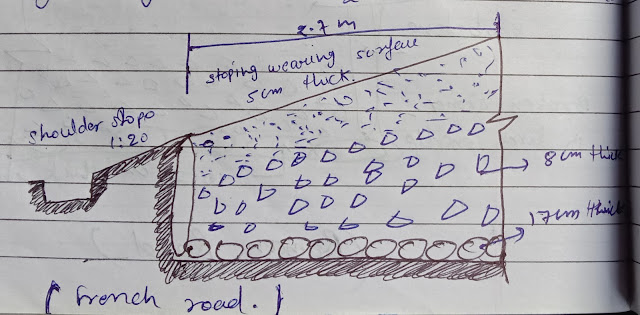 2.7 m
sloping wearing surface
5cm thick.
shoulder slope
1:20
8cm thick
17cm thick
( French road. )